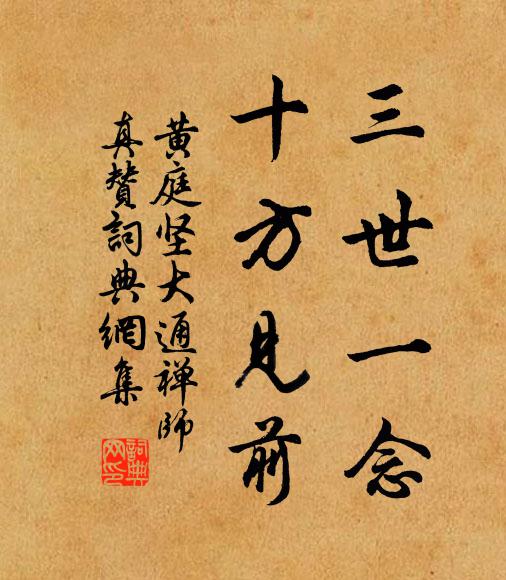 三世一念
十方見前
黄庭坚大通禅師
真賛詞典網集
詞典
网印